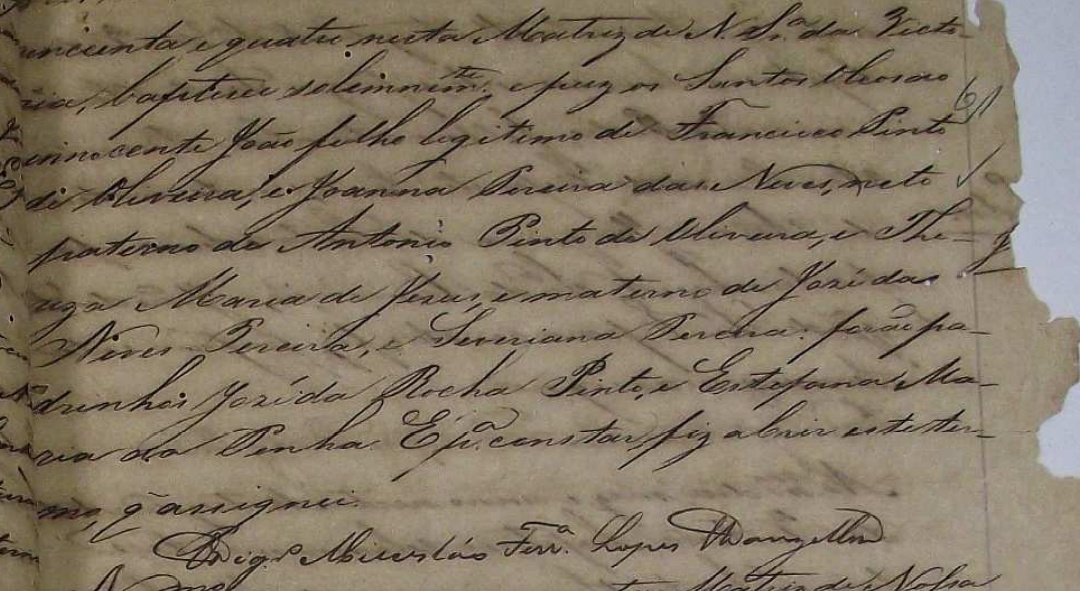 incoenta e quatro nesta Matriz de N. Sª. da Victo-
ria, baptisei solemnemte. e puz os Santos Oleos ao
innocente João filho legitimo de Francisco Pinto
de Oliveira, e Joanna Pereira das Neves, neto
paterno de Antonio Pinto de Oliveira, e The-
Maria de Jesus, e materno de Jozé das
Neves Pereira, e Severiana Pereira: forão pa-
drinhos Jozé da Rocha Pinto, e Estefana Ma-
ria da Penha. E pª. constar fiz abrir este ter-
mo, q̃ assignei.
Vigrº. Ferrª. Lopes
Matriz de Nossa